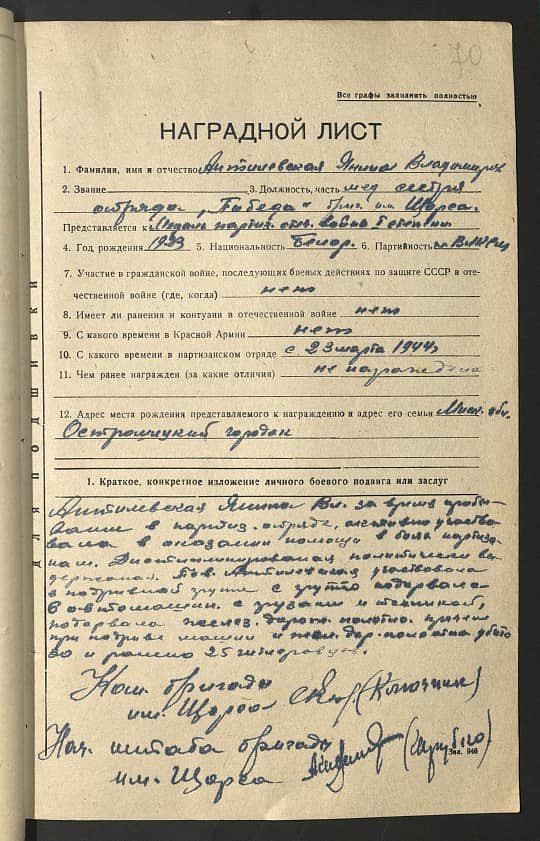 70
Все графы заполнить полностью
НАГРАДНОЙ ЛИСТ
1. Фамилия, имя и отчество Антилевская Янина Владимиров
2. Звание 3. Должность, часть мед сестра
отряда „Победа" бриг. им. Щорса.
Представляется к Медаль партиз. отеч. войны I степени
4. Год рождения 1923 5. Национальность Белор. 6. Партийность ВЛКСМ
7. Участие в гражданской войне, последующих боевых действиях по защите СССР в оте-
чественной войне (где, когда) нет
8. Имеет ли ранения и контузии в отечественной войне нет
9. С какого времени в Красной Армии нет
10. С какого времени в партизанском отряде с 23 марта 1944г
11. Чем ранее награжден (за какие отличия) не награждена
12. Адрес места рождения представляемого к награждению и адрес его семьи Минск. обл.
Острошицкий городок
ДЛЯ ПОДШИВКИ
1. Краткое, конкретное изложение личного боевого подвига или заслуг
Антилевская Янина Вл. за время пребы-
вания в партиз. отряде, активно участво-
вала в оказании помощи в боях партиза-
нам. Дисциплинированая политически вы-
держаная. Тов. Антилевская участвовала
в подрывной групе с групой подорвала
автомашин. с грузом и техникой,
подорвала желез. дорож. полотно. причем
при подрыве машин и жел. дор. полотна убито
и ранено 25 гитлеровцев.
Ком. бригады
им. Щорса (Ключник)
Нач. штаба бригады
им. Щорса
Зак. 946